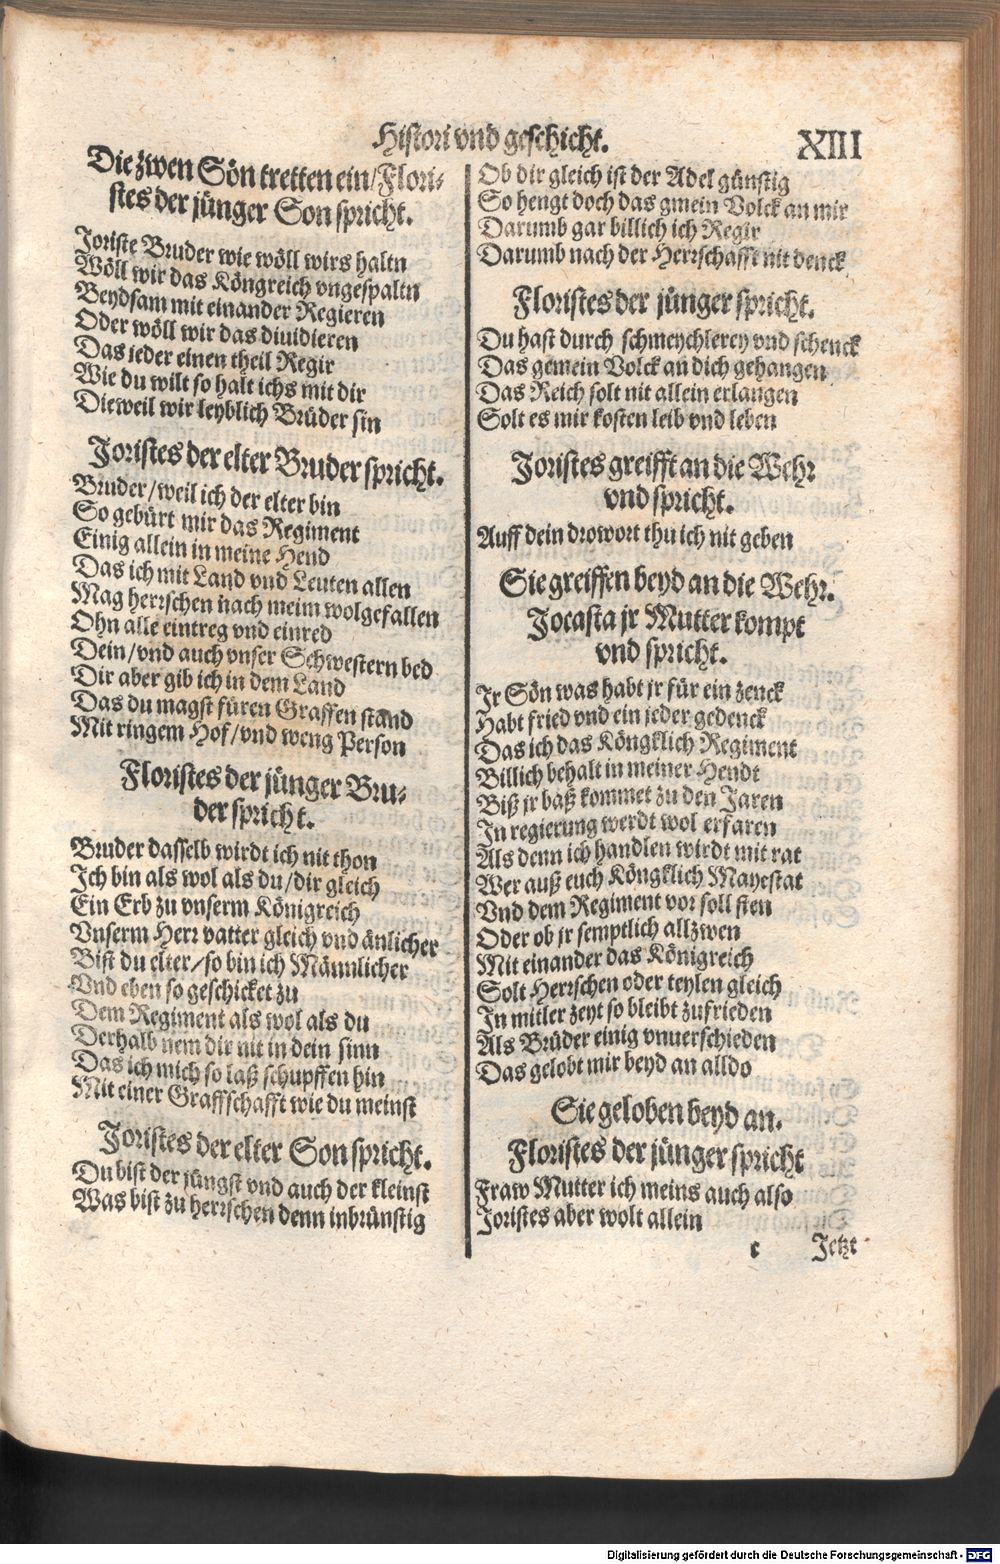 Histori vnd geschicht.
XIII
Die zwen Sön tretten ein/Flori-
stes der jünger Son spricht.
Joriste Bruder wie wöll wirs haltn
Wöll wir das Köngreich vngespaltn
Beydsam mit einander Regieren
Oder wöll wir das diuidieren
Das jeder einen theil Regir
Wie du wilt so halt ichs mit dir
Dieweil wir leyblich Brüder sin
Joristes der elter Bruder spricht.
Bruder/weil ich der elter bin
So gebürt mir das Regiment
Einig allein in meine Hend
Das ich mit Land vnd Leuten allen
Mag herrschen nach meim wolgefallen
Ohn alle eintreg vnd einred
Dein/vnd auch vnser Schwestern bed
Dir aber gib ich in dem Land
Das du magst füren Graffen stand
Mit ringem Hof/vnd weng Person
Floristes der jünger Bru-
der spricht.
Bruder dasselb wirdt ich nit thon
Ich bin als wol als du/dir gleich
Ein Erb zu vnserm Königreich
Vnserm Herr vatter gleich vnd änlicher
Bist du elter/so bin ich Männlicher
Vnd eben so geschicket zu
Dem Regiment als wol als du
Derhalb nem dir nit in dein sinn
Das ich mich so laß schupffen hin
Mit einer Graffschafft wie du meinst
Joristes der elter Son spricht.
Du bist der jüngst vnd auch der kleinst
Was bist zu herrschen denn inbrünstig
Ob dir gleich ist der Adel günstig
So hengt doch das gmein Volck an mir
Darumb gar billich ich Regir
Darumb nach der Herrschafft nit denck
Floristes der jünger spricht.
Du hast durch schmeychlerey vnd schenck
Das gemein Volck an dich gehangen
Das Reich solt nit allein erlangen
Solt es mir kosten leib vnd leben
Joristes greifft an die Wehr
vnd spricht.
Auff dein drowort thu ich nit geben
Sie greiffen beyd an die Wehr.
Jocasta jr Mutter kompt
vnd spricht.
Jr Sön was habt jr für ein zenck
Habt fried vnd ein jeder gedenck
Das ich das Köngklich Regiment
Billich behalt in meiner Hendt
Biß jr baß kommet zu den Jaren
In regierung werdt wol erfaren
Als denn ich handlen wirdt mit rat
Wer auß euch Köngklich Mayestat
Vnd dem Regiment vor soll sten
Oder ob jr semptlich allzwen
Mit einander das Königreich
Solt Herrschen oder teylen gleich
In mitler zeyt so bleibt zufrieden
Als Brüder einig vnuerschieden
Das gelobt mir beyd an alldo
Sie geloben beyd an.
Floristes der jünger spricht
Fraw Mutter ich meins auch also
Joristes aber wolt allein
c
Jetzt
Digitalisierung gefördert durch die Deutsche Forschungsgemeinschaft - DFG